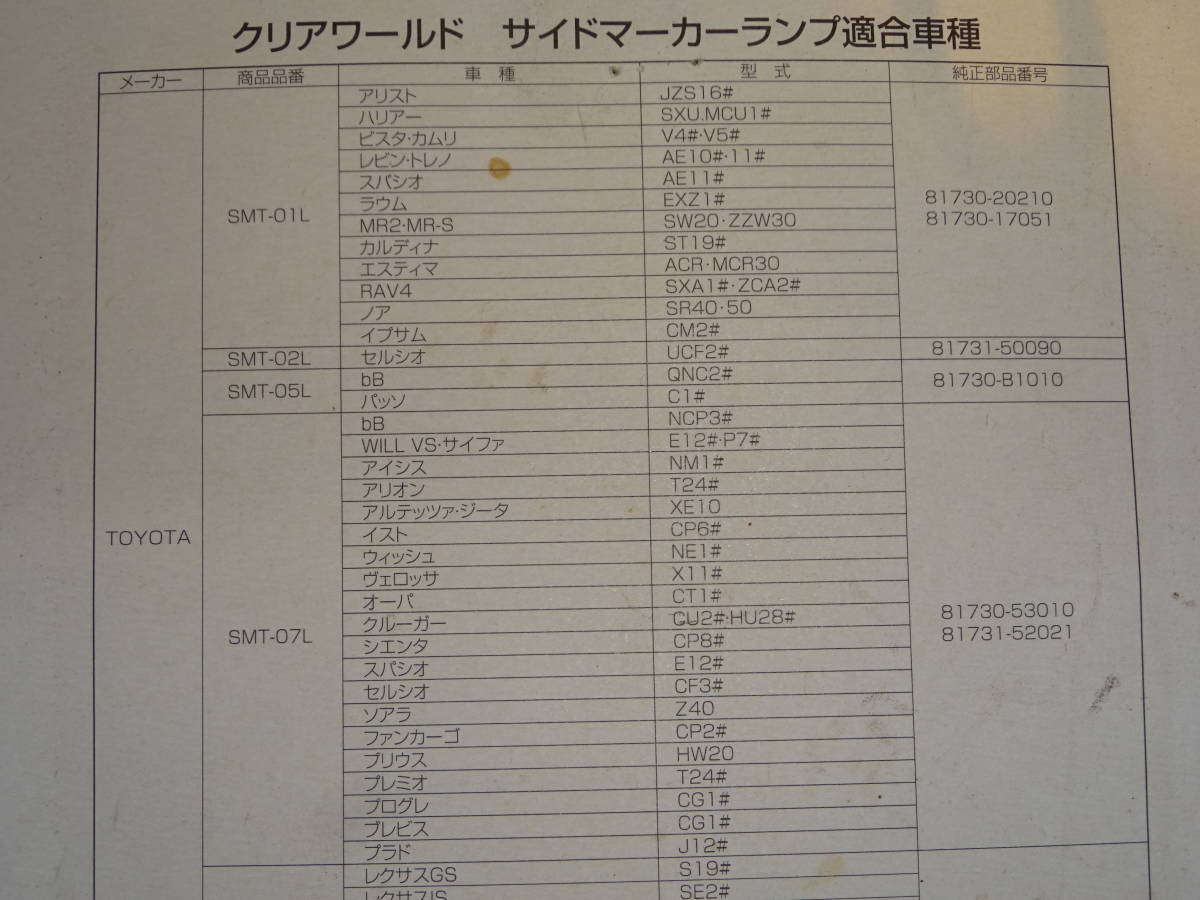 クリアワールド サイドマーカーランプ適合車種
メーカー 商品品番 車種 型式 純正部品番号
アリスト JZS16#
ハリアー SXU.MCU1#
ビスタ・カムリ V4#・V5#
レビン・トレノ AE10#・11#
スパシオ AE11#
ラウム EXZ1# 81730-20210
SMT-01L MR2・MR-S SW20・ZZW30 81730-17051
カルディナ ST19#
エスティマ ACR・MCR30
RAV4 SXA1#・ZCA2#
ノア SR40・50
イプサム CM2#
SMT-02L セルシオ UCF2# 81731-50090
SMT-05L bB QNC2# 81730-B1010
パッソ C1#
bB NCP3#
WILL VS・サイファ E12#・P7#
アイシス NM1#
アリオン T24#
アルテッツァ・ジータ XE10
TOYOTA イスト CP6#
ウィッシュ NE1#
ヴェロッサ X11#
オーパ CT1#
クルーガー CU2#・HU28# 81730-53010
SMT-07L シエンタ CP8# 81731-52021
スパシオ E12#
セルシオ CF3#
ソアラ Z40
ファンカーゴ CP2#
プリウス HW20
プレミオ T24#
プログレ CG1#
ブレビス CG1#
プラド J12#
レクサスGS S19#
レクサスIS SE2#